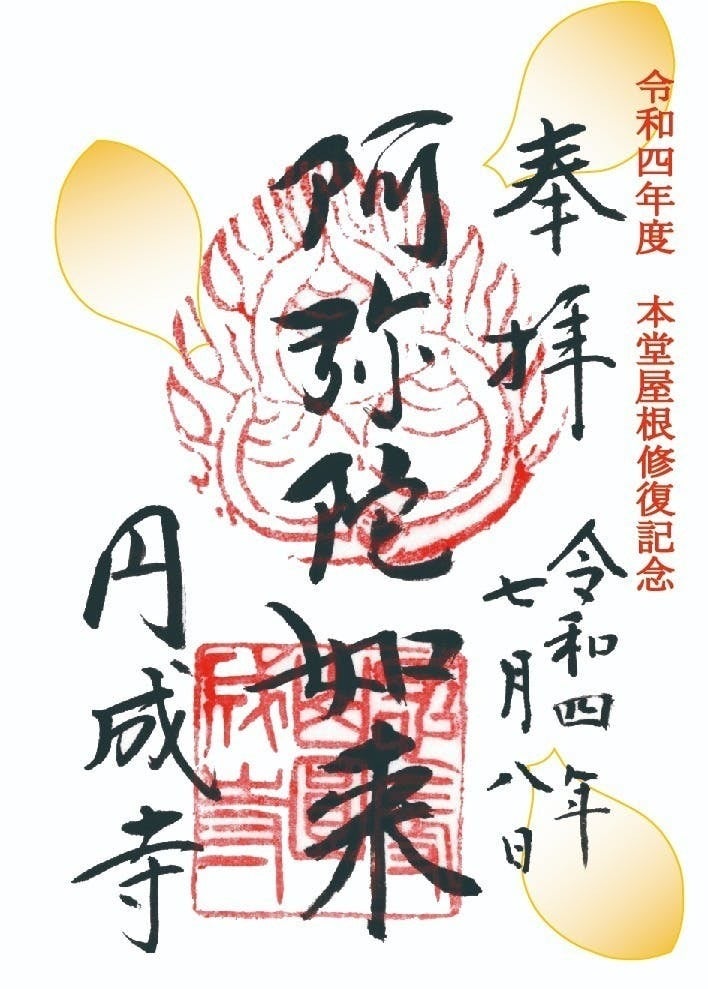 令和四年度 本堂屋根修復記念
奉拝
令和四年
七月八日
阿弥陀如来
円成寺